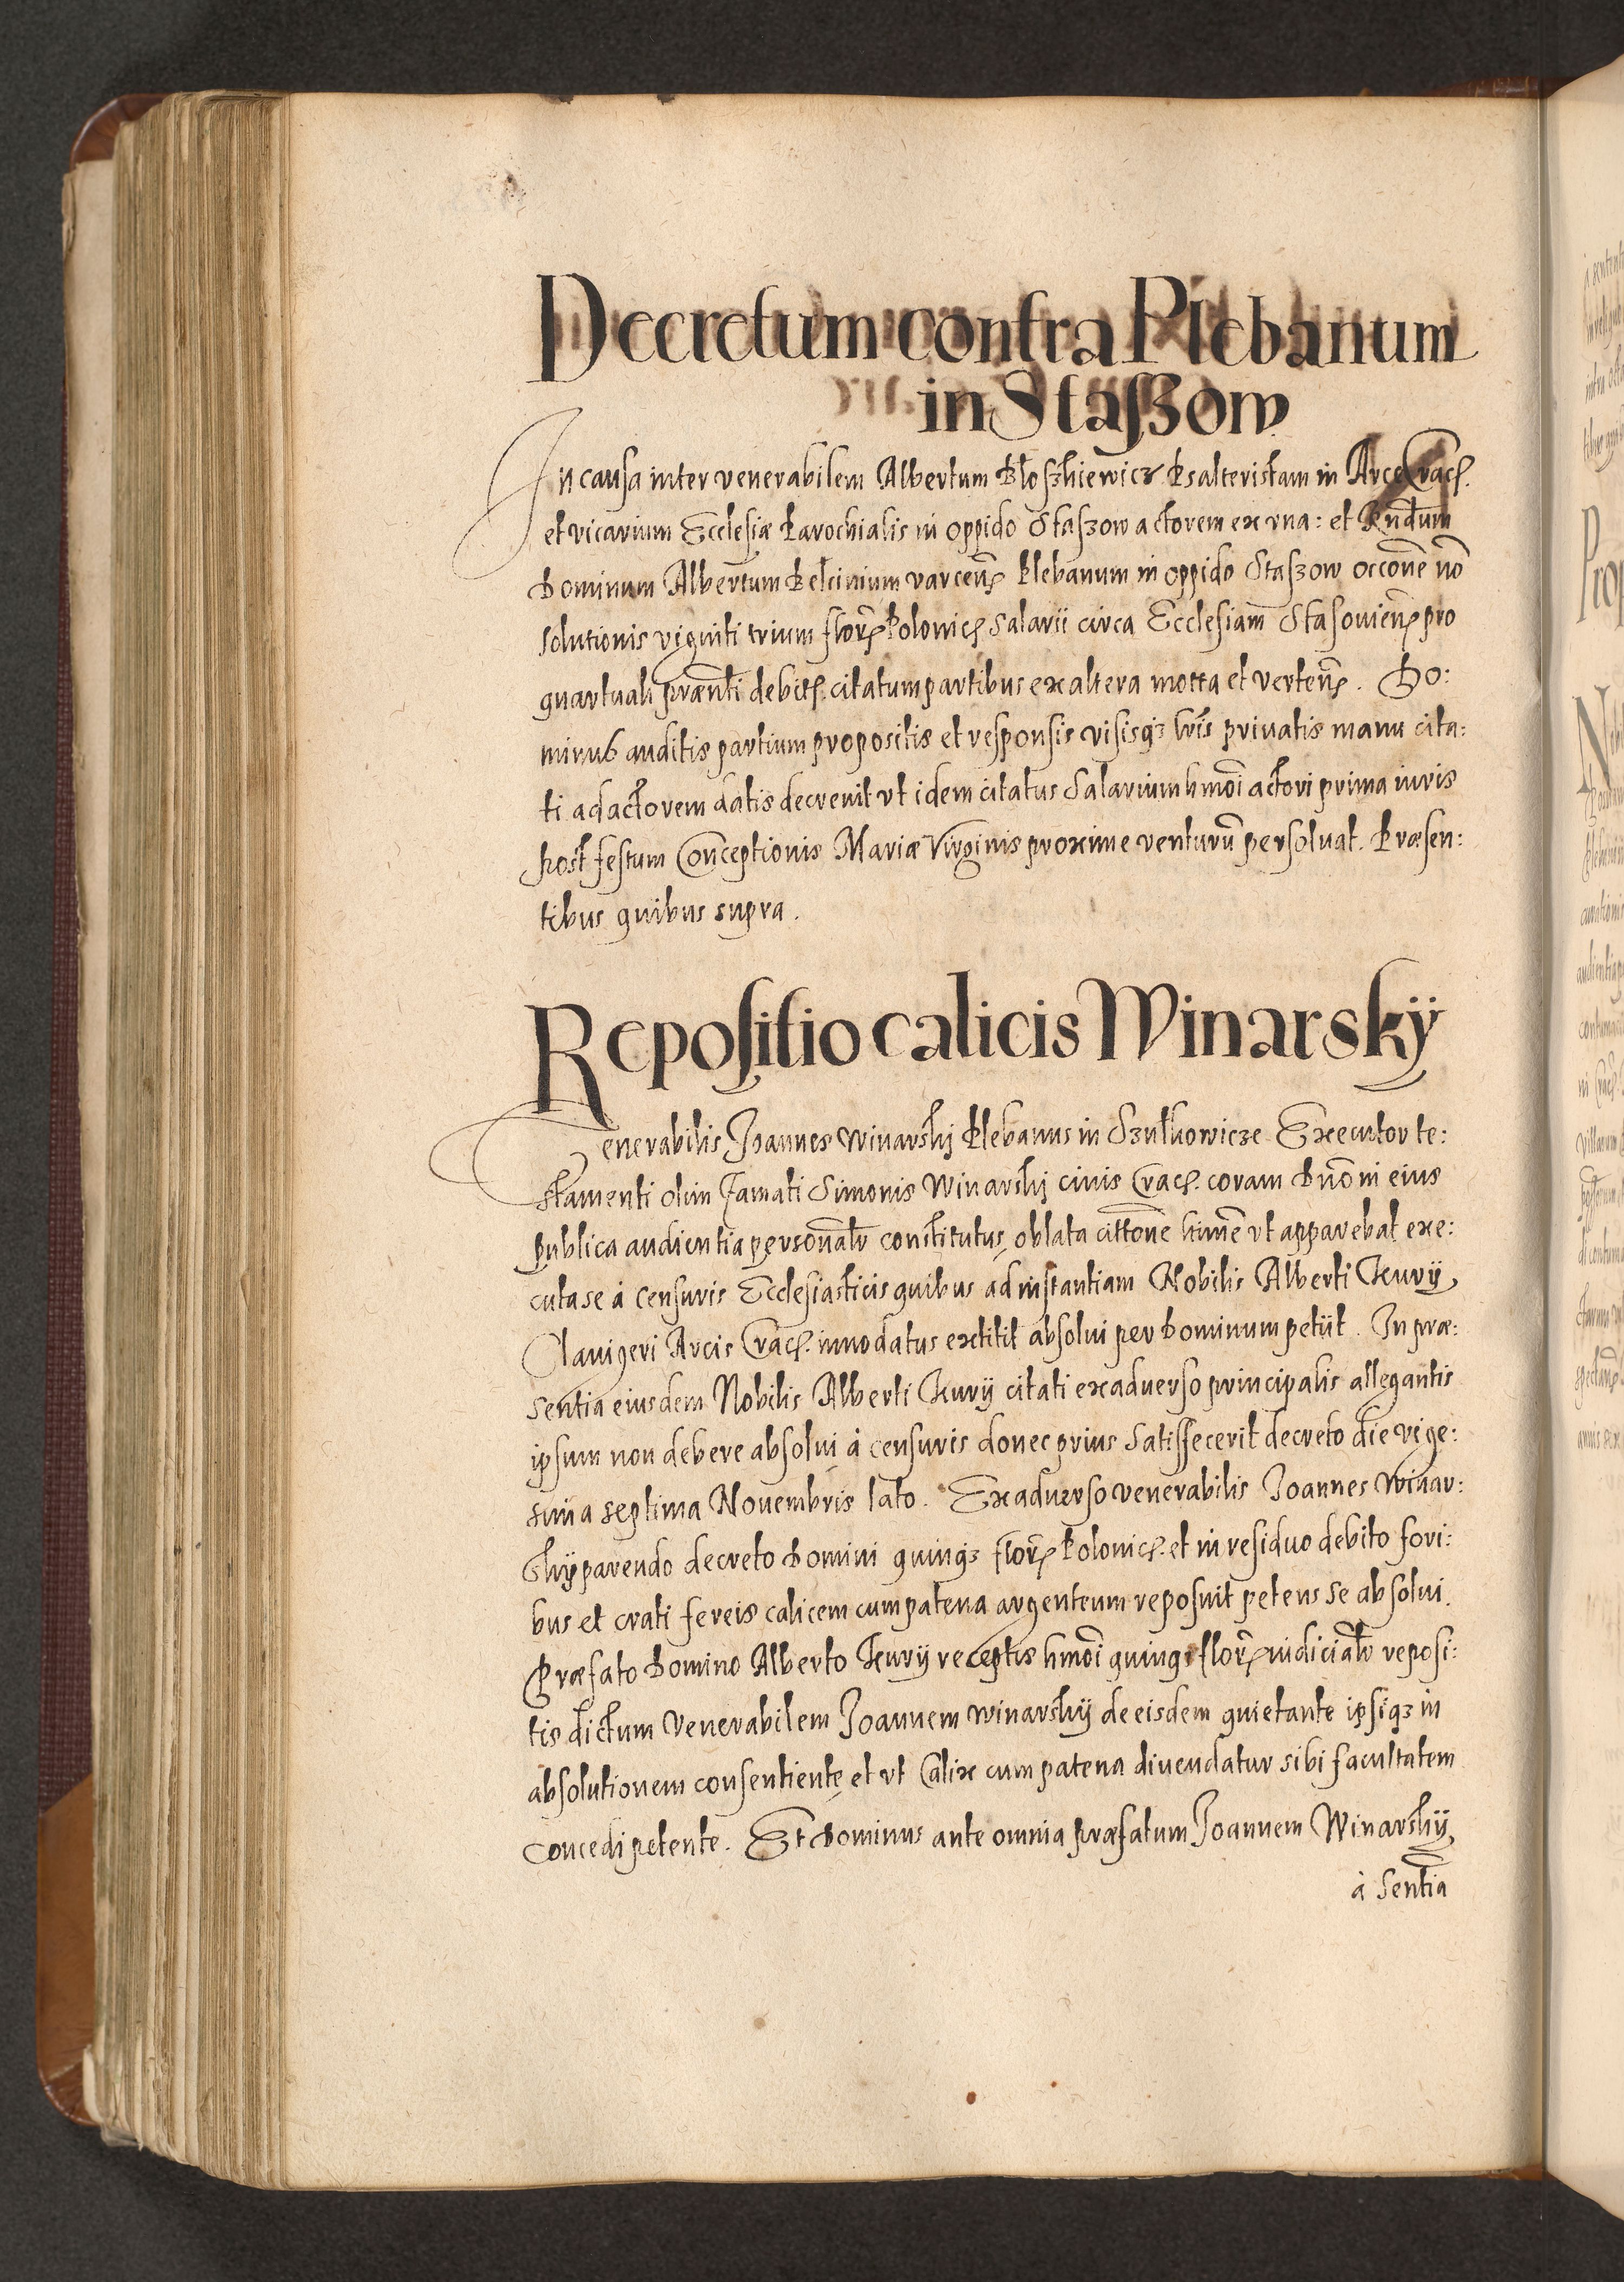 Decretum contra Plebanum
in Staſzow
In causa inter venerabilem Albertum Ploſzkiewicz Psalteristam in Arce Crac.
et vicarium Ecclesiæ Parochialis in oppido Staſzow actorem ex vna: et Rndum
Dominum Albertum Pelcinium varcen. Plebanum in oppido Staſzow occone no
solutionis viginti trium flor. Polonic. salarii circa Ecclesiam Stasouien. pro
quartuali præsenti debit. citatum partibus ex altera mota et verten. Do:
minus auditis partium propositis et responsis visisqz lris priuatis manu cita:
ti ad actorem datis decreuit vt idem citatus salarium hmoi actori prima iuris
post festum Conceptionis Mariæ Virginis proxime venturu persoluat. Præsen:
tibus quibus supra.
Repositio calicis Winarskÿ
Venerabilis Joannes Winarskj Plebanus in Executor te:
stamenti olim famati Simonis Winarskj ciuis Crac. coram Dno in eius
publica audientia personalr constitutus, oblata cittone vt apparebat exe:
cuta se à censuris Ecclesiasticis quibus ad instantiam Nobilis Alberti Kurÿ
Clauigeri Arcis Crac. innodatus extitit absolui per Dominum petiit. In præ:
sentia eiusdem Nobilis Alberti Kurÿ citati ex aduerso principalis allegantis
ipsum non debere absolui à censuris donec prius satisfecerit decreto die vige:
sima septima Nouembris lato. Ex aduerso venerabilis Joannes Winar:
skÿ parendo decreto Domini quinqz flor. Polonic. et in residuo debito fori:
bus et crati fereis calicem cum patena argenteum reposuit petens se absolui.
Præfato Domino Alberto Kurÿ receptis hmoi quinqz flor. iudicialr reposi:
tis dictum Venerabilem Joannem Winarskÿ de eisdem quietante ipsiqz in
absolutionem consentiente et vt Calix cum patena diuendatur sibi facultatem
concedi petente. Et Dominus ante omnia præfatum Joannem Winarskÿ
à sentia